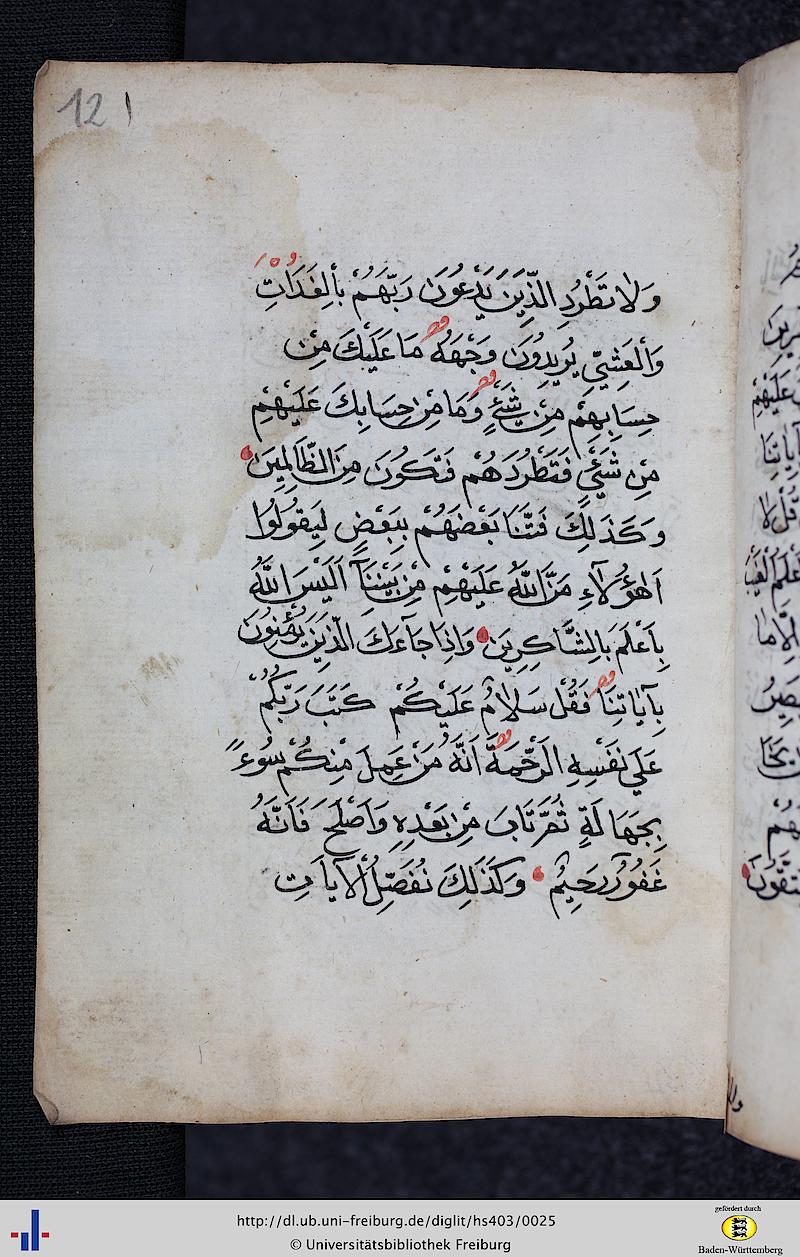 12
وَلَا تَطْرُدِ الَّذِينَ يَدْعُونَ رَبَّهُمْ بِالْغَدَاتِ
وَالْعَشِيِّ يُرِيدُونَ وَجْهَهُ مَا عَلَيْكَ مِنْ
حِسَابِهِمْ مِنْ شَيْءٍ وَمَا مِنْ حِسَابِكَ عَلَيْهِمْ
مِنْ شَيْءٍ فَتَطْرُدَهُمْ فَتَكُونَ مِنَ الظَّالِمِينَ
وَكَذَلِكَ فَتَنَّا بَعْضَهُمْ بِبَعْضٍ لِيَقُولُوا
اَهٰؤُلَآءِ مَنَّ اللّٰهُ عَلَيْهِمْ مِنْ بَيْنِنَآ اَلَيْسَ اللّٰهُ
بِاَعْلَمَ بِالشَّاكِرِينَ وَاِذَا جَآءَكَ الَّذِينَ يُؤْمِنُونَ
بِآيَاتِنَا فَقُلْ سَلَامٌ عَلَيْكُمْ كَتَبَ رَبُّكُمْ
عَلَي نَفْسِهِ الرَّحْمَةَ اَنَّهُ مَنْ عَمِلَ مِنْكُمْ سُوءً
بِجَهَالَةٍ ثُمَّ تَابَ مِنْ بَعْدِهِ وَاَصْلَحَ فَاَنَّهُ
غَفُورٌ رَحِيمٌ وَكَذَلِكَ نُفَصِّلُ الْآيَاتِ
http://dl.ub.uni-freiburg.de/diglit/hs403/0025
© Universitätsbibliothek Freiburg
gefördert durch
Baden-Württemberg